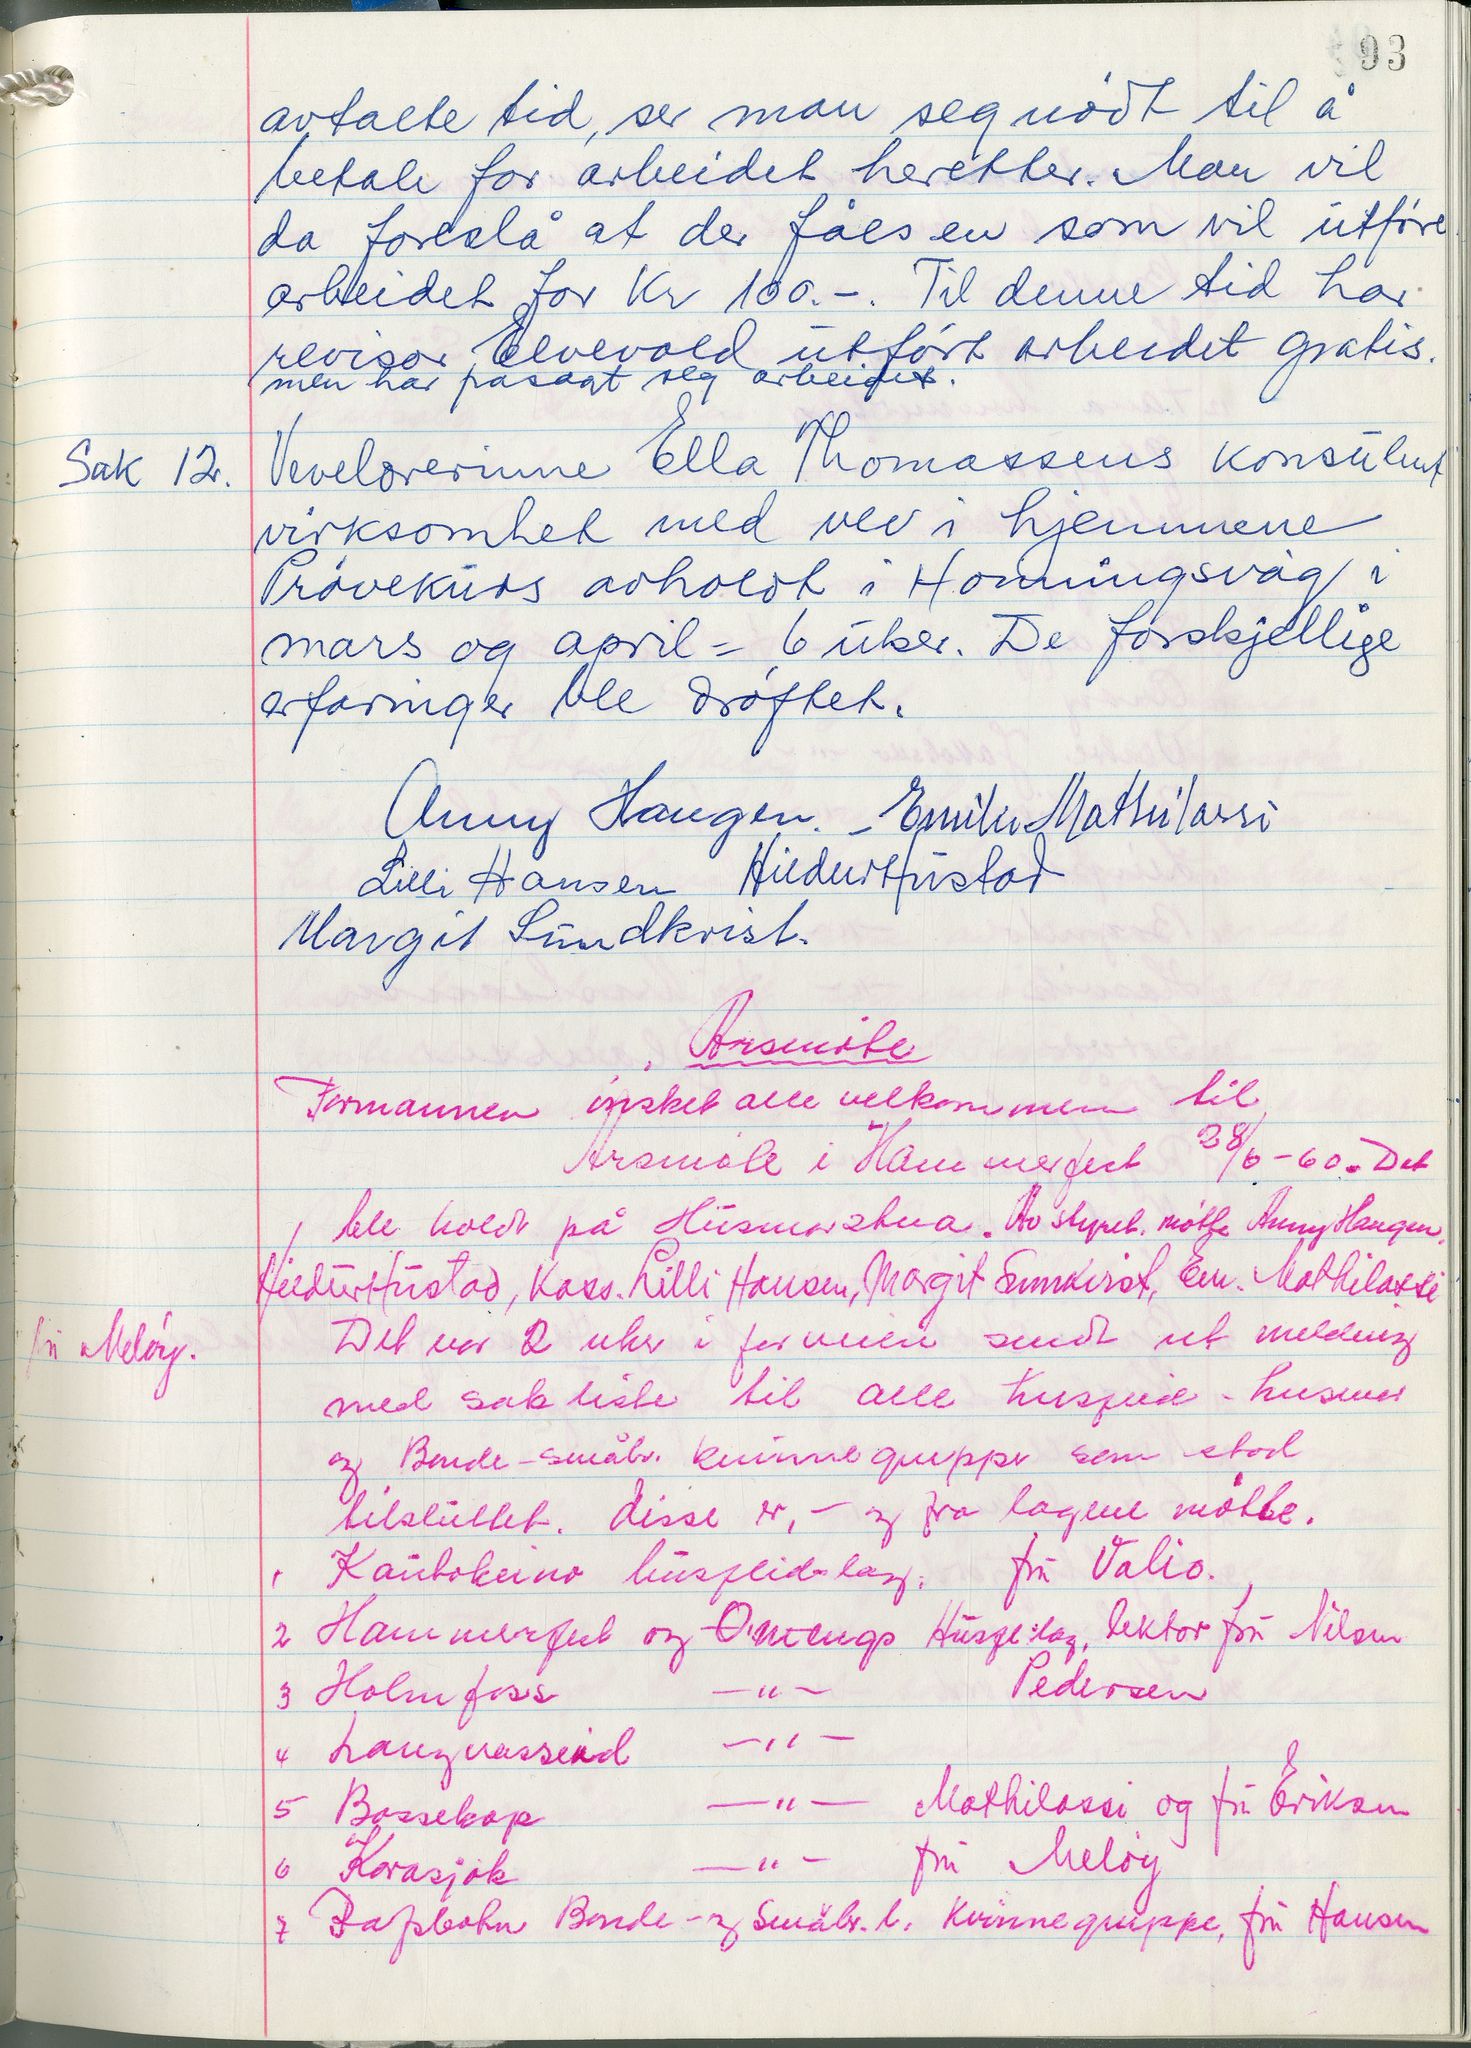 93
avtalte tid, ser man seg nödt til å
betale for arbeidet heretter. Man vil
da foreslå at der fåes en som vil utföre
arbeidet for Kr 100.-. Til denne tid har
revisor Elvevold utfört arbeidet gratis.
men har påsagt seg arbeidet.
Sak 12. Vevelærerinne Ella Thomassens konsulent
virksomhet med vev i hjemmene
Prövekurs avholdt i Honningsvåg i
mars og april = 6 uker. De forskjellige
erfaringer ble dröftet.
Anny Haugen. - Emilie Mathilassi
Lilli Hansen Hildur Hustad
Margit Sundkvist.
Årsmöte
Formannen önsket alle velkommen til
Årsmöte i Hammerfest 28/6-60. Det
ble holdt på Husmorstua. Av styret mötte Anny Haugen,
Hildur Hustad, Kass. Lilli Hansen, Margit Sunkvist, Em. Mathilassi
fru Melöy. Det var 2 uker i forveien sendt ut melding
med sakliste til alle husflid - husmor
og Bonde-småbr. kvinnegrupper som stod
tilsluttet. Disse er, - og fra lagene mötte.
1 Kautokeino husflidslag. fru Valio.
2 Hammerfest og Omengs Husfl.lag, lektor fru Nilsen
3 Holmfoss -"- Pedersen
4 Langnesseid -"-
5 Bossekop -"- Mathilassi og fru Eriksen
6 Karasjok -"- fru Melöy
7 Rafsbotn Bonde- og Småbr.l. Kvinnegruppe, fru Hansen